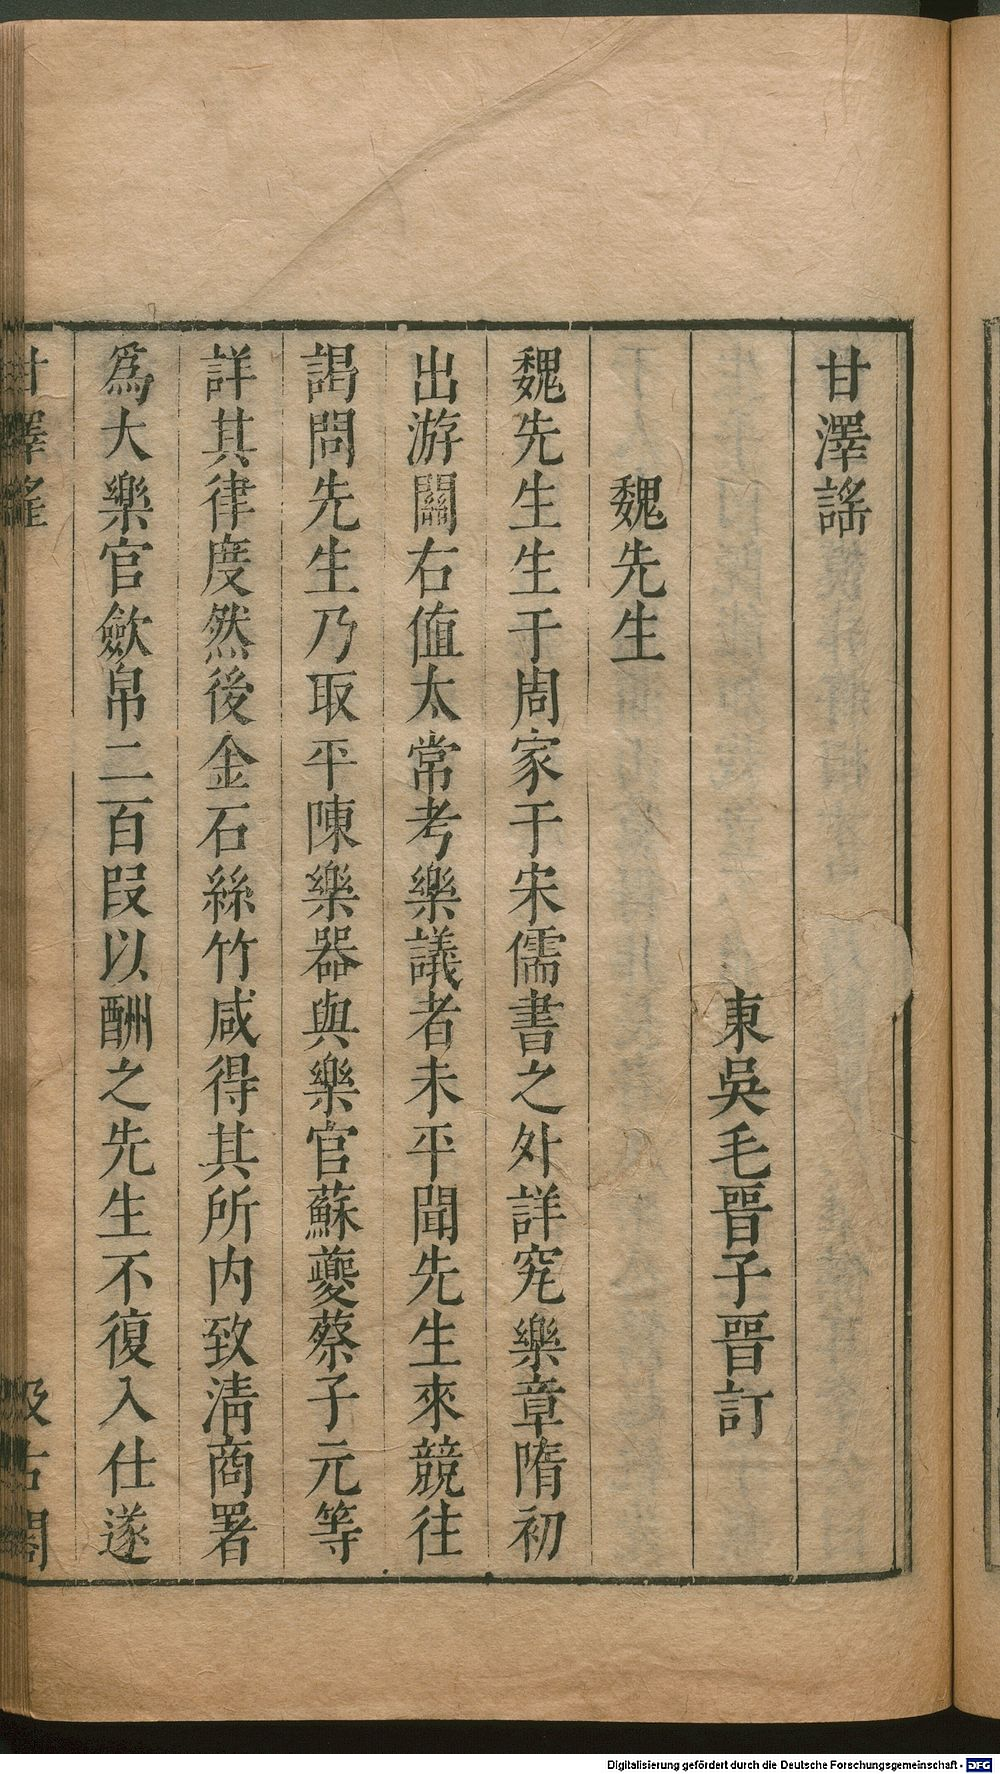 甘澤謠
東吳毛晉子晉訂
魏先生
魏先生生于周家于宋儒書之外詳究樂章隋初
出游關右值太常考樂議者未平聞先生來競往
謁問先生乃取平陳樂器與樂官蘇夔蔡子元等
詳其律度然後金石絲竹咸得其所内致清商署
爲大樂官歛帛二百段以酬之先生不復入仕遂
甘澤謠
汲古閣
Digitalisierung gefördert durch die Deutsche Forschungsgemeinschaft - DFG